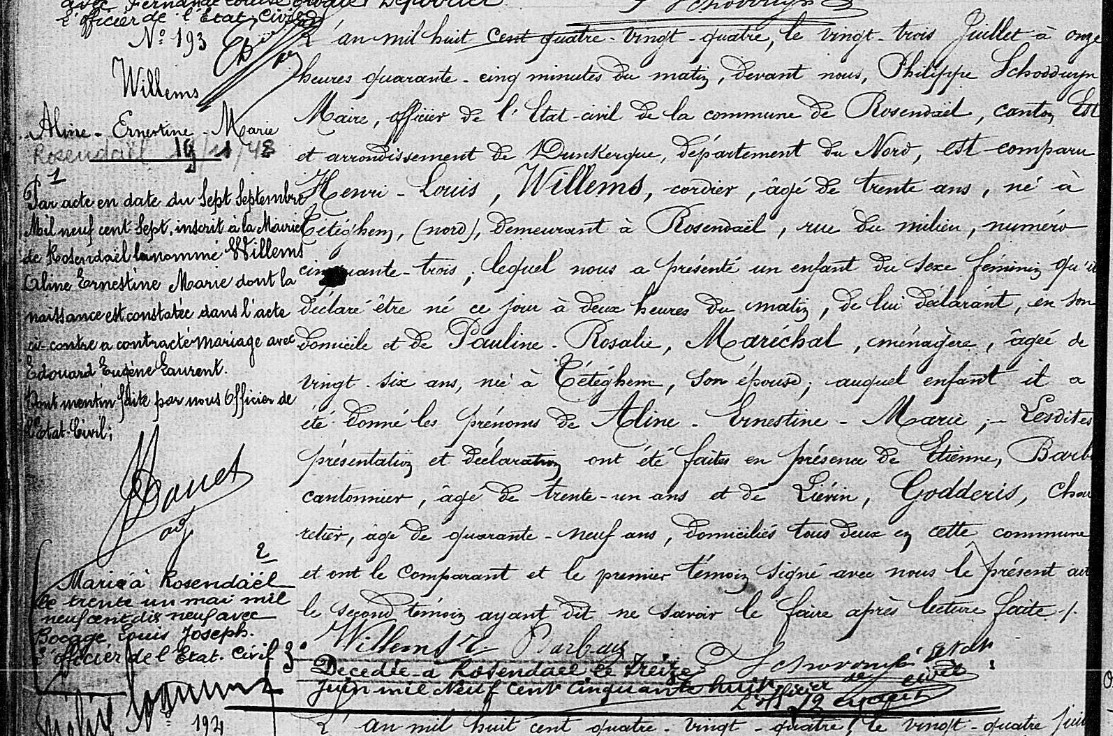 l'officier de l'État Civil
N° 193
Willems
Aline - Ernestine - Marie
Rosendaël
1
Par acte en date du Sept Septembre
Mil neuf cent Sept, inscrit à la Mairie
de Rosendaël la nommé Willems
Aline Ernestine Marie dont la
naissance est constatée dans l'acte
ci contre a contracté mariage avec
Edouard Eugène Laurent.
Dont mention faite par nous Officier de
l'Etat-Civil;
2
Mariée à Rosendaël
le trente un mai mil
neuf cent dix neuf avec
Bocage Louis Joseph.
L'officier de l'État Civil
L'an mil huit cent quatre-vingt-quatre, le vingt-trois Juillet à onze
heures quarante-cinq minutes du matin, devant nous, Philippe Schodduyn
Maire, officier de l'État-civil de la commune de Rosendaël, canton Est
et arrondissement de Dunkerque, département du Nord, est comparu
Henri-Louis, Willems, cordier, âgé de trente ans, né à
Cétéghem, (nord), demeurant à Rosendaël, rue du milieu, numéro
cinquante-trois, lequel nous a présenté un enfant du sexe féminin qu'il
déclaré être né ce jour à deux heures du matin, de lui déclarant, en son
domicile et de Pauline-Rosalie, Maréchal, ménagère, âgée de
vingt-six ans, née à Cétéghem, son épouse; auquel enfant il a
été donné les prénoms de Aline-Ernestine-Marie, ;- Lesdites
présentation et déclaration ont été faites en présence de Etienne, Barb
cantonnier, âgé de trente-un ans et de Liévin, Godderis, char
retier, âgé de quarante-neuf ans, domiciliés tous deux en cette commune
et ont le comparant et le premier témoin signé avec nous le présent acte
le second témoin ayant dit ne savoir le faire après lecture faite./.
Willems
3° Décédée à Rosendaël le treize
Juin mil neuf cent cinquante huit
194
L'an mil huit cent quatre-vingt-quatre, le vingt-quatre